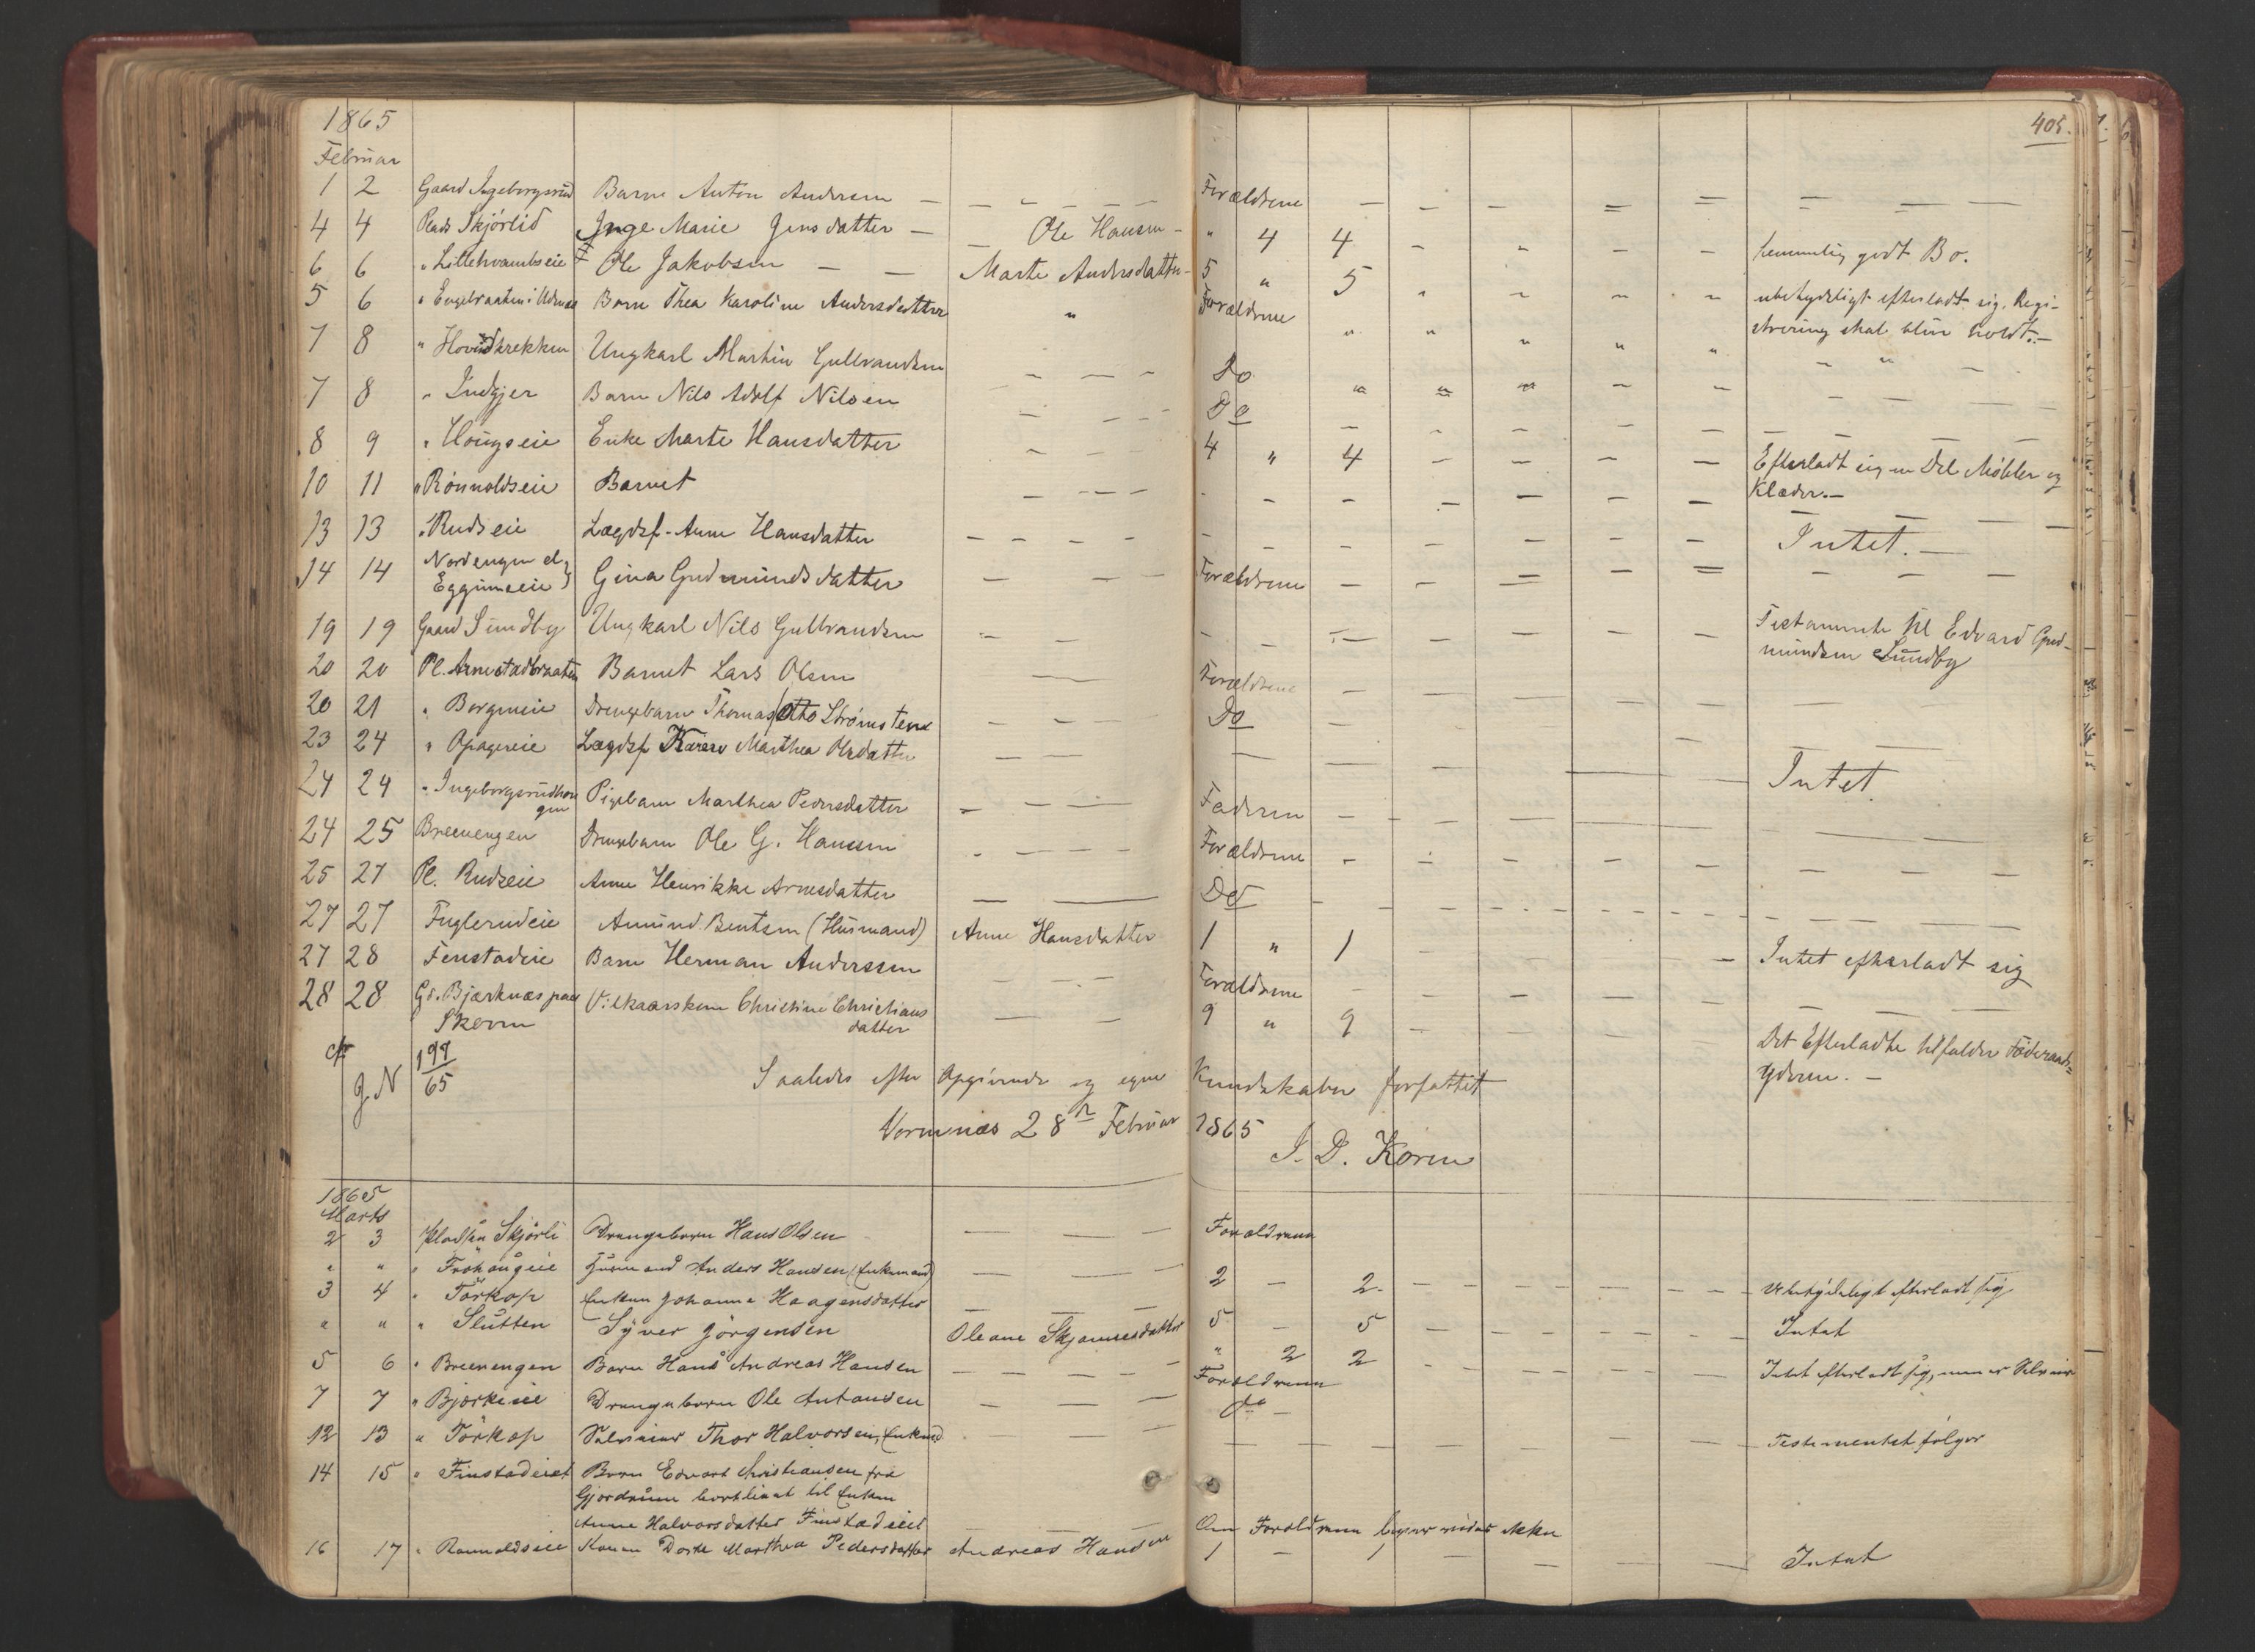 1865
405.
Februar
1 2 Gaard Ingeborgsrud Barn Anton Andersen — — — — — Forældrene — — — — — — — —
4 4 Plads Skjørlid Inge Marie Jensdatter — — Ole Hansen - " 4 4 - " - - temmelig godt Bo.
6 6 " Lillehvambseie Ole Jakobsen — — Marte Andersdatter - 5 " 5 " - - - ubetydeligt efterladt sig. Regi-
strering skal blive holdt. —
5 6 " Engebraaten i Udnæs Barn Thea Karoline Andersdatter " Forældrene " " " " " - " -
7 8 " Ungkarl Martin Gulbrandsen — — — Do " " " - - — — —
7 8 " Indgjer Barn Nils Adolf Nilsen — — — Do — - - — — — — —
8 9 " Hougseie Enke Marte Hansdatter — — — 4 " 4 — — — — Efterladt sig en Del Møbler og
Klæder. —
10 11 " Rønnoldseie Barnet — — — - - — — — — — — — —
13 13 " Rudseie Lægdsf. Anne Hansdatter — — — — - — — — — — — Intet. —
14 14 Nordengen el.
Eggumseie Gina Gudmundsdatter — — — Forældrene — — — — — — — —
19 19 Gaard Sundby Ungkarl Nils Gulbrandsen — — — - — — — — — — Testamente til Edvard Gud-
mundsen Sundby
20 20 Pl. Arnestadbraaten Barnet Lars Olsen — — Forældrene — — — — — — —
20 21 " Borgeneie Drengebarn Thomas Otto — — — Do — —
23 24 " Opagereie Lægdsf Karen Marthea Olsdatter — — — — — — — — Intet.
24 24 " Ingeborgsrudhou
gen Pigebarn Marthea Pedersdatter — — — Faderen — — — — — — —
24 25 Breenengen Drengebarn Ole G. Hansen — — — — Forældrene — — — — — — — —
25 27 Pl. Rudseie Anne Henrikke Arnesdatter — — Do — — — — — — —
27 27 Fuglerudeie Amund Bentsen (Husmand) Anne Hansdatter 1 " 1 — — — — Intet efterladt sig
27 28 Fenstadeie Barn Herman Anderssen — — Forældrene — — — — — — —
28 28 Gd. Bjærknæs paa
Skoven Vilkaarskone Christine Christians
datter — — 9 " 9 — — — — Det Efterladte tilfalder Føderaads-
yderen. —
cfr
J. N 197
65
Saaledes efter Opgivende og egne Kundskaber forfattet
Vormnæs 28de Februar 1865
J. D. Koren
1865
Marts
2 3 Pladsen Skjørli Drengebarn Hans Olsen — — — Forældrene
" " " Frohougeie Husmand Anders Hansen (Enkemand) — — — 2 — 2 — — — — — — Ubetydeligt efterladt sig
3 4 " Torkop Enken Johanne Haagensdatter — — — 5 — 5 — — — — — — Intet
" " " Slutten Syver Jörgensen Oleane " 2 2 — — — — — — Intet efterladt sig, men er Selveier
5 6 " Breenengen Barn Hans Andreas Hansen — — — — Forældrene
7 7 " Bjørkeeie Drengebarn Ole Antonsen — — — do —
12 13 " Torkop Selveier Thor Halvorsen, Enkemd — — — — — — — — — — — Testamentet følger
14 15 " Finstadeiet Barn Edvart Christiansen fra
Gjerdrum bortlient til Enken
Anne Halvorsdatter Finstadeiet — — — Om Forældrene lever vides ikke
16 17 " Rønnoldseie Konen Dorte Marthea Pedersdatter Andreas Hansen 1 — 1 — — — — Intet